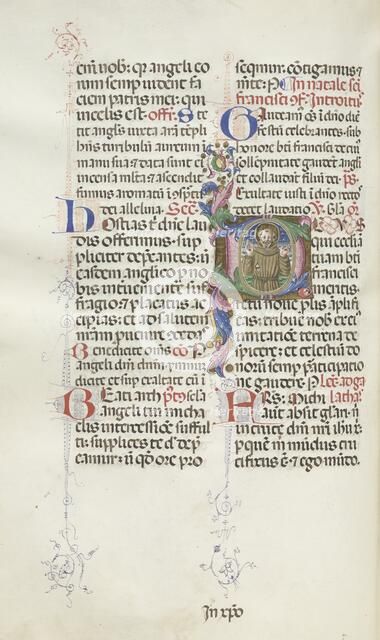 cem nob: qr angeli eo
rum semp uident fa
ciem patris mei: qui
in celis est. offr. Ste
tit anglus iuxta aram tepli
hns turibulu aureum
manu sua et data sunt ei
incensa mlta et ascendit
fumus aromatu
dei alleluia. Secr.
Hostias t dne lau
dis offerimus sup
pliciter depcantes: ut
easdem anglico p no
bis interuentu suf
fragio et placatus ac
cipias: et ad salutem
nram puenire
Benedicite oms co
angeli dni dnm
dicite et sup exaltate eu i
Beati arch
angeli tui micha
elis intercessioe sufful
ti: supplices te d dep
camur: ut qd ore pro
sequim: cotigamus et
mente: In natale sci
francisci Introitus
Gaudeam oes i dno die
festu celebrantes: sub
honore bti francisci de cui
sollepnitate gaudet angli
et collaudat filiu dei:
Exultate iusti i dno rectos
decet laudatio.
Deus qui ecclesia
tuam bti
francisci
meritis
fetu noue plis aplifi
cas: tribue nob ex ei
imitatioe terrena de
spicere: et celestiu do
norum semp participatio
ne gaudere: ad ga
lathas.
Frs: Michi
aut absit glari: ni
in cruce dni nri ihu x:
p que m mudus cru
cifixus e: et ego mudo.
In xpo